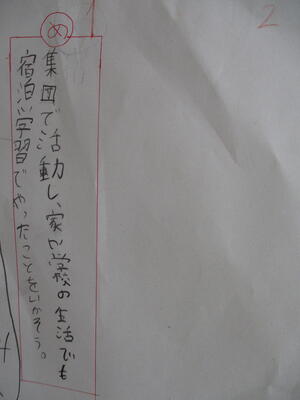 2
め
集団で活動し、家や学校の生活でも
宿泊学習でやったことをいかそう。